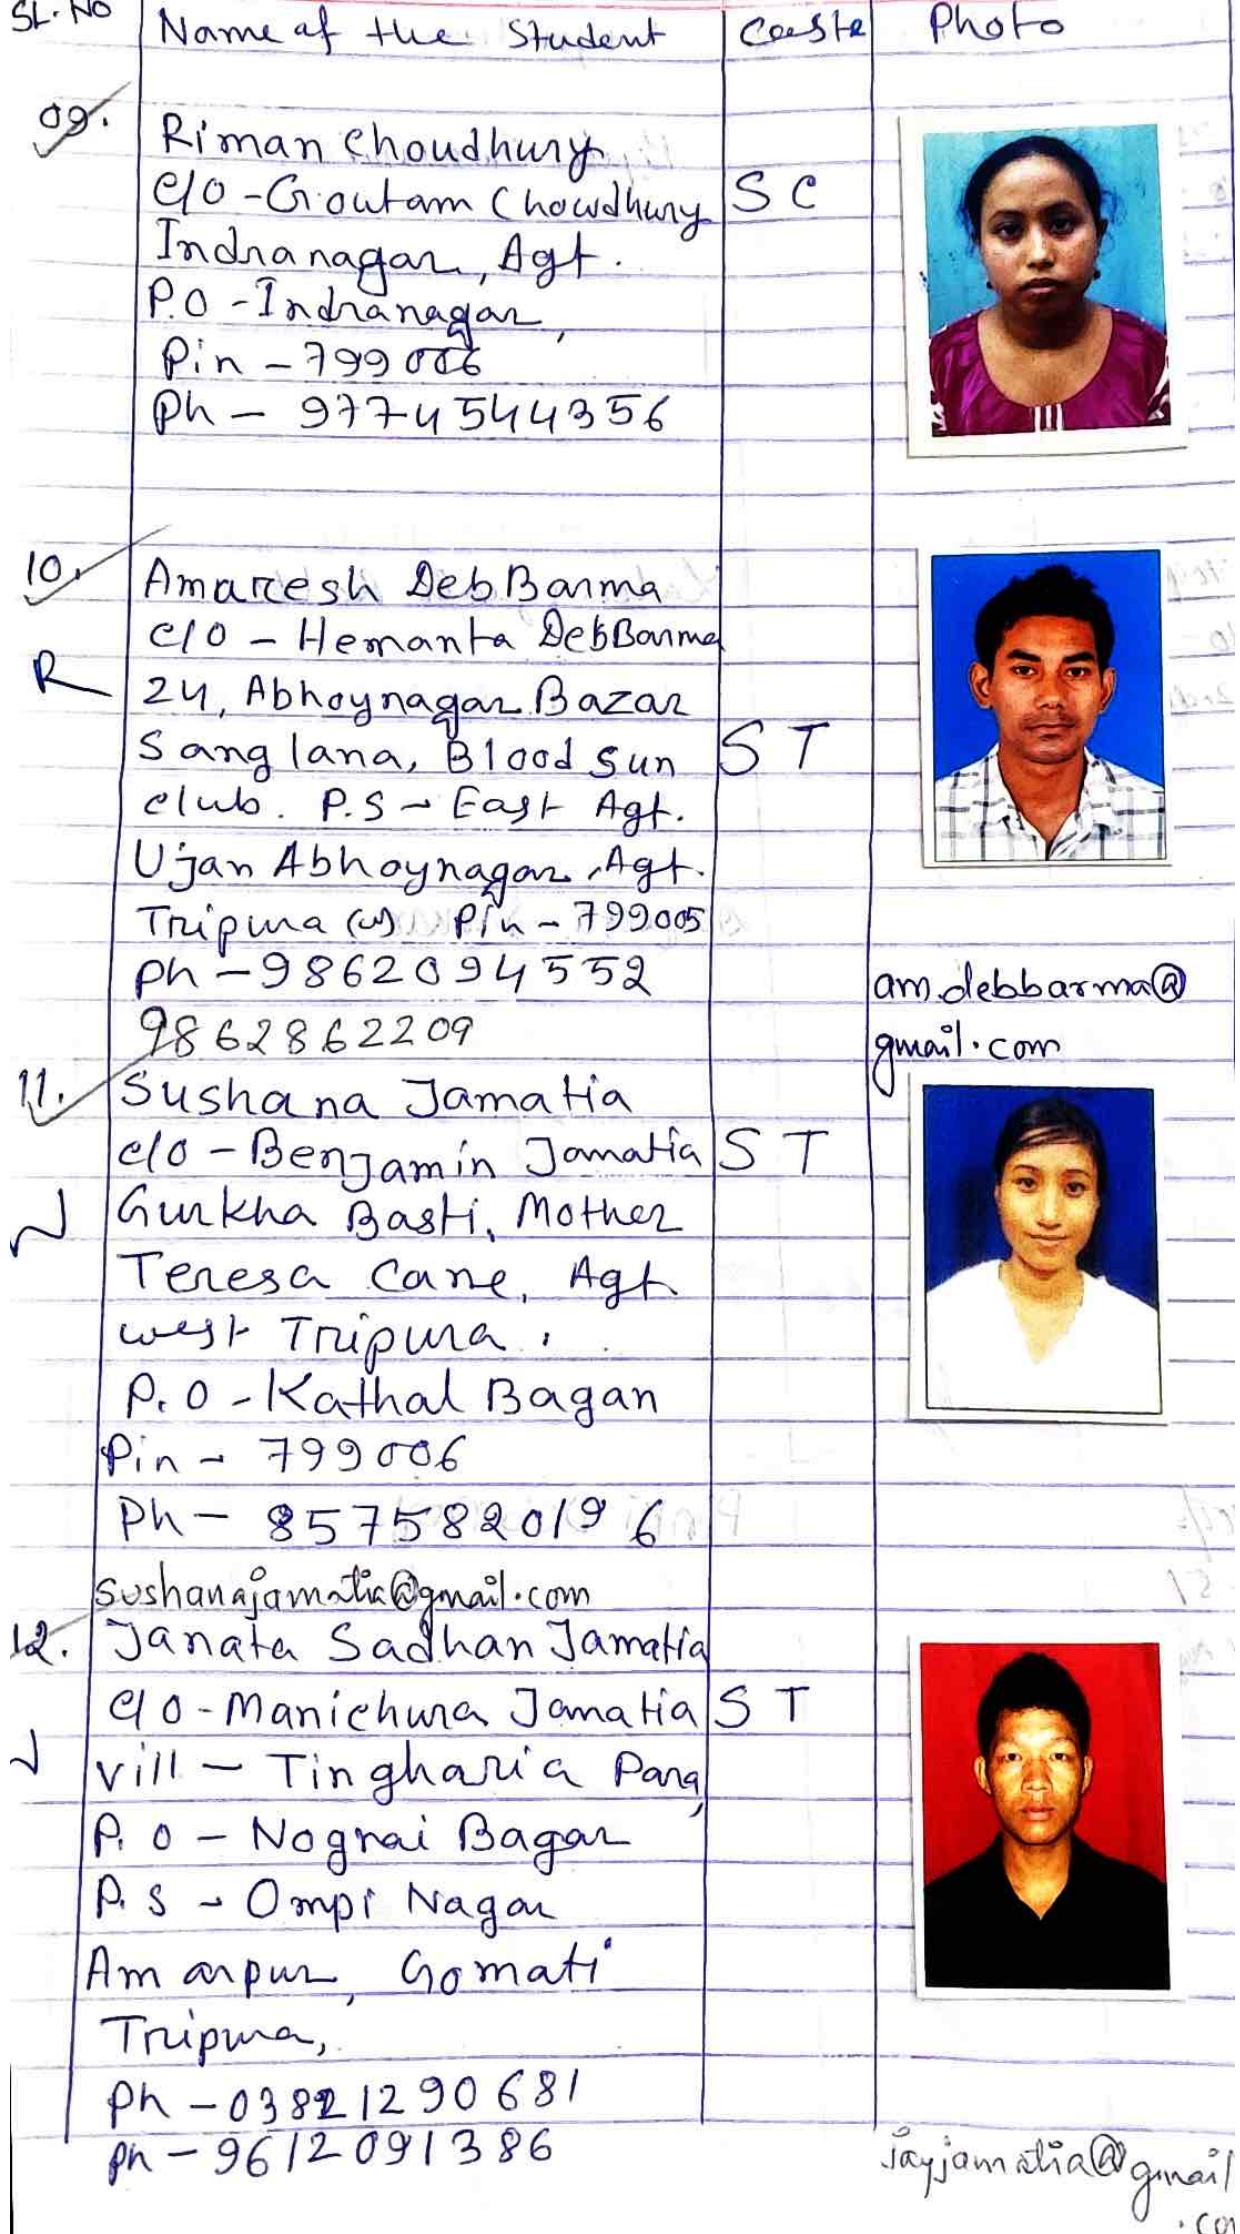 SL. No Name of the Student Caste Photo
09. Riman Choudhury
C/O - Goutam Chowdhury SC
Indranagar, Agt.
P.O - Indranagar,
Pin - 799006
Ph - 97745544356
10. Amaresh DebBarma
C/O - Hemanta DebBarma
R 24, Abhoynagar Bazar
Sanglana, Blood Sun ST
club. P.S - East Agt.
Ujan Abhoynagar, Agt.
Tripura (W) Pin - 799005
Ph - 9862094552
am.debbarma@
9862862209
gmail.com
11. Sushana Jamatia
C/O - Benjamin Jamatia ST
Gurkha Basti, Mother
Teresa Cane, Agt
west Tripura.
P.O - Kathal Bagan
Pin - 799006
Ph - 8575820196
sushanajamatia@gmail.com
12. Janata Sadhan Jamatia
C/O - Manichura Jamatia ST
Vill - Tingharia Para,
P.O - Nograi Bagar
P.S - Ompi Nagar
Amarpur, Gomati
Tripura,
Ph - 03821290681
Ph - 9612091386
jayjamatia@gmail